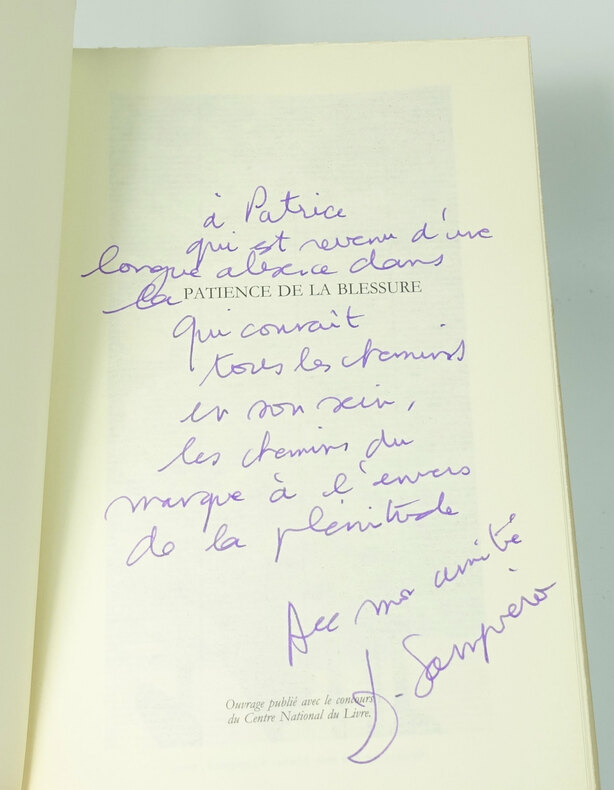 à Patrice
qui est revenu d'une
longue absence dans
la PATIENCE DE LA BLESSURE
qui connaît
tous les chemins
en son sein,
les chemins du
manque à l'envers
de la plénitude
Avec mon amitié
D. Sampiero
Ouvrage publié avec le concours
du Centre National du Livre.